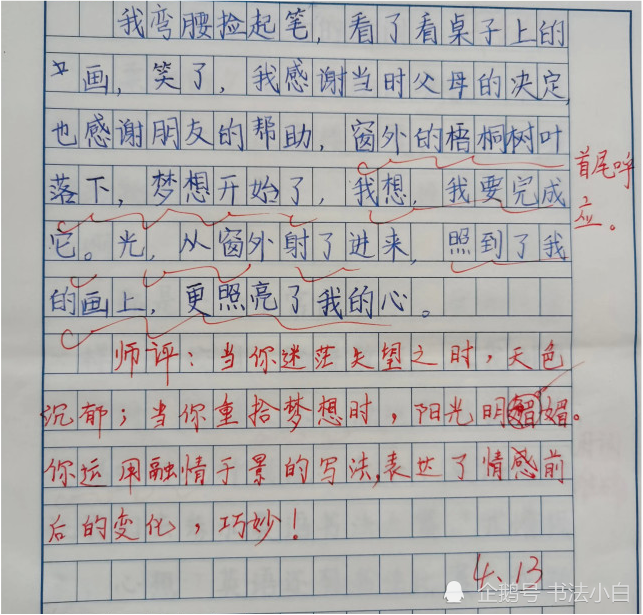 我弯腰捡起笔，看了看桌子上的
画，笑了，我感谢当时父母的决定，
也感谢朋友的帮助，窗外的梧桐树叶
落下，梦想开始了，我想，我要完成
它。光，从窗外射了进来，照到了我
的画上，更照亮了我的心。
首尾呼
应。
师评：当你迷茫失望之时，天色
沉郁；当你重拾梦想时，阳光明媚。
你运用融情于景的写法，表达了情感前
后的变化，巧妙！
4、13
企鹅号 书法小白